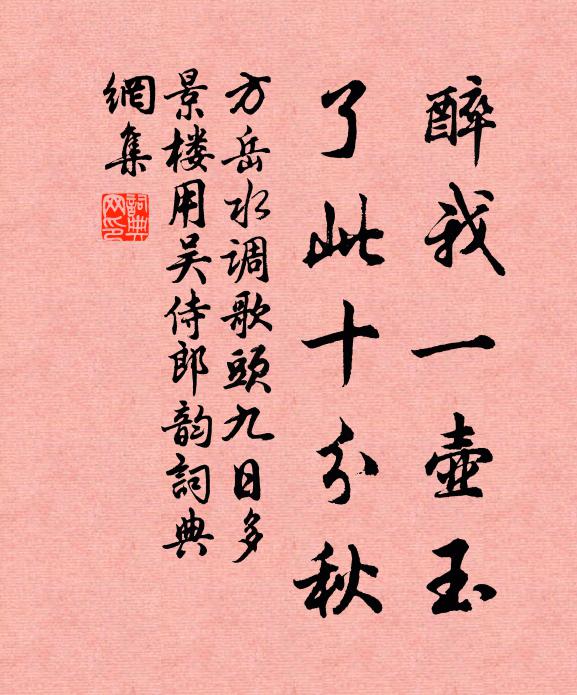 醉我一壶玉
了此十分秋
方岳水调歌头九日多
景楼用吴侍郎韵詞典
網集
詞典
网印